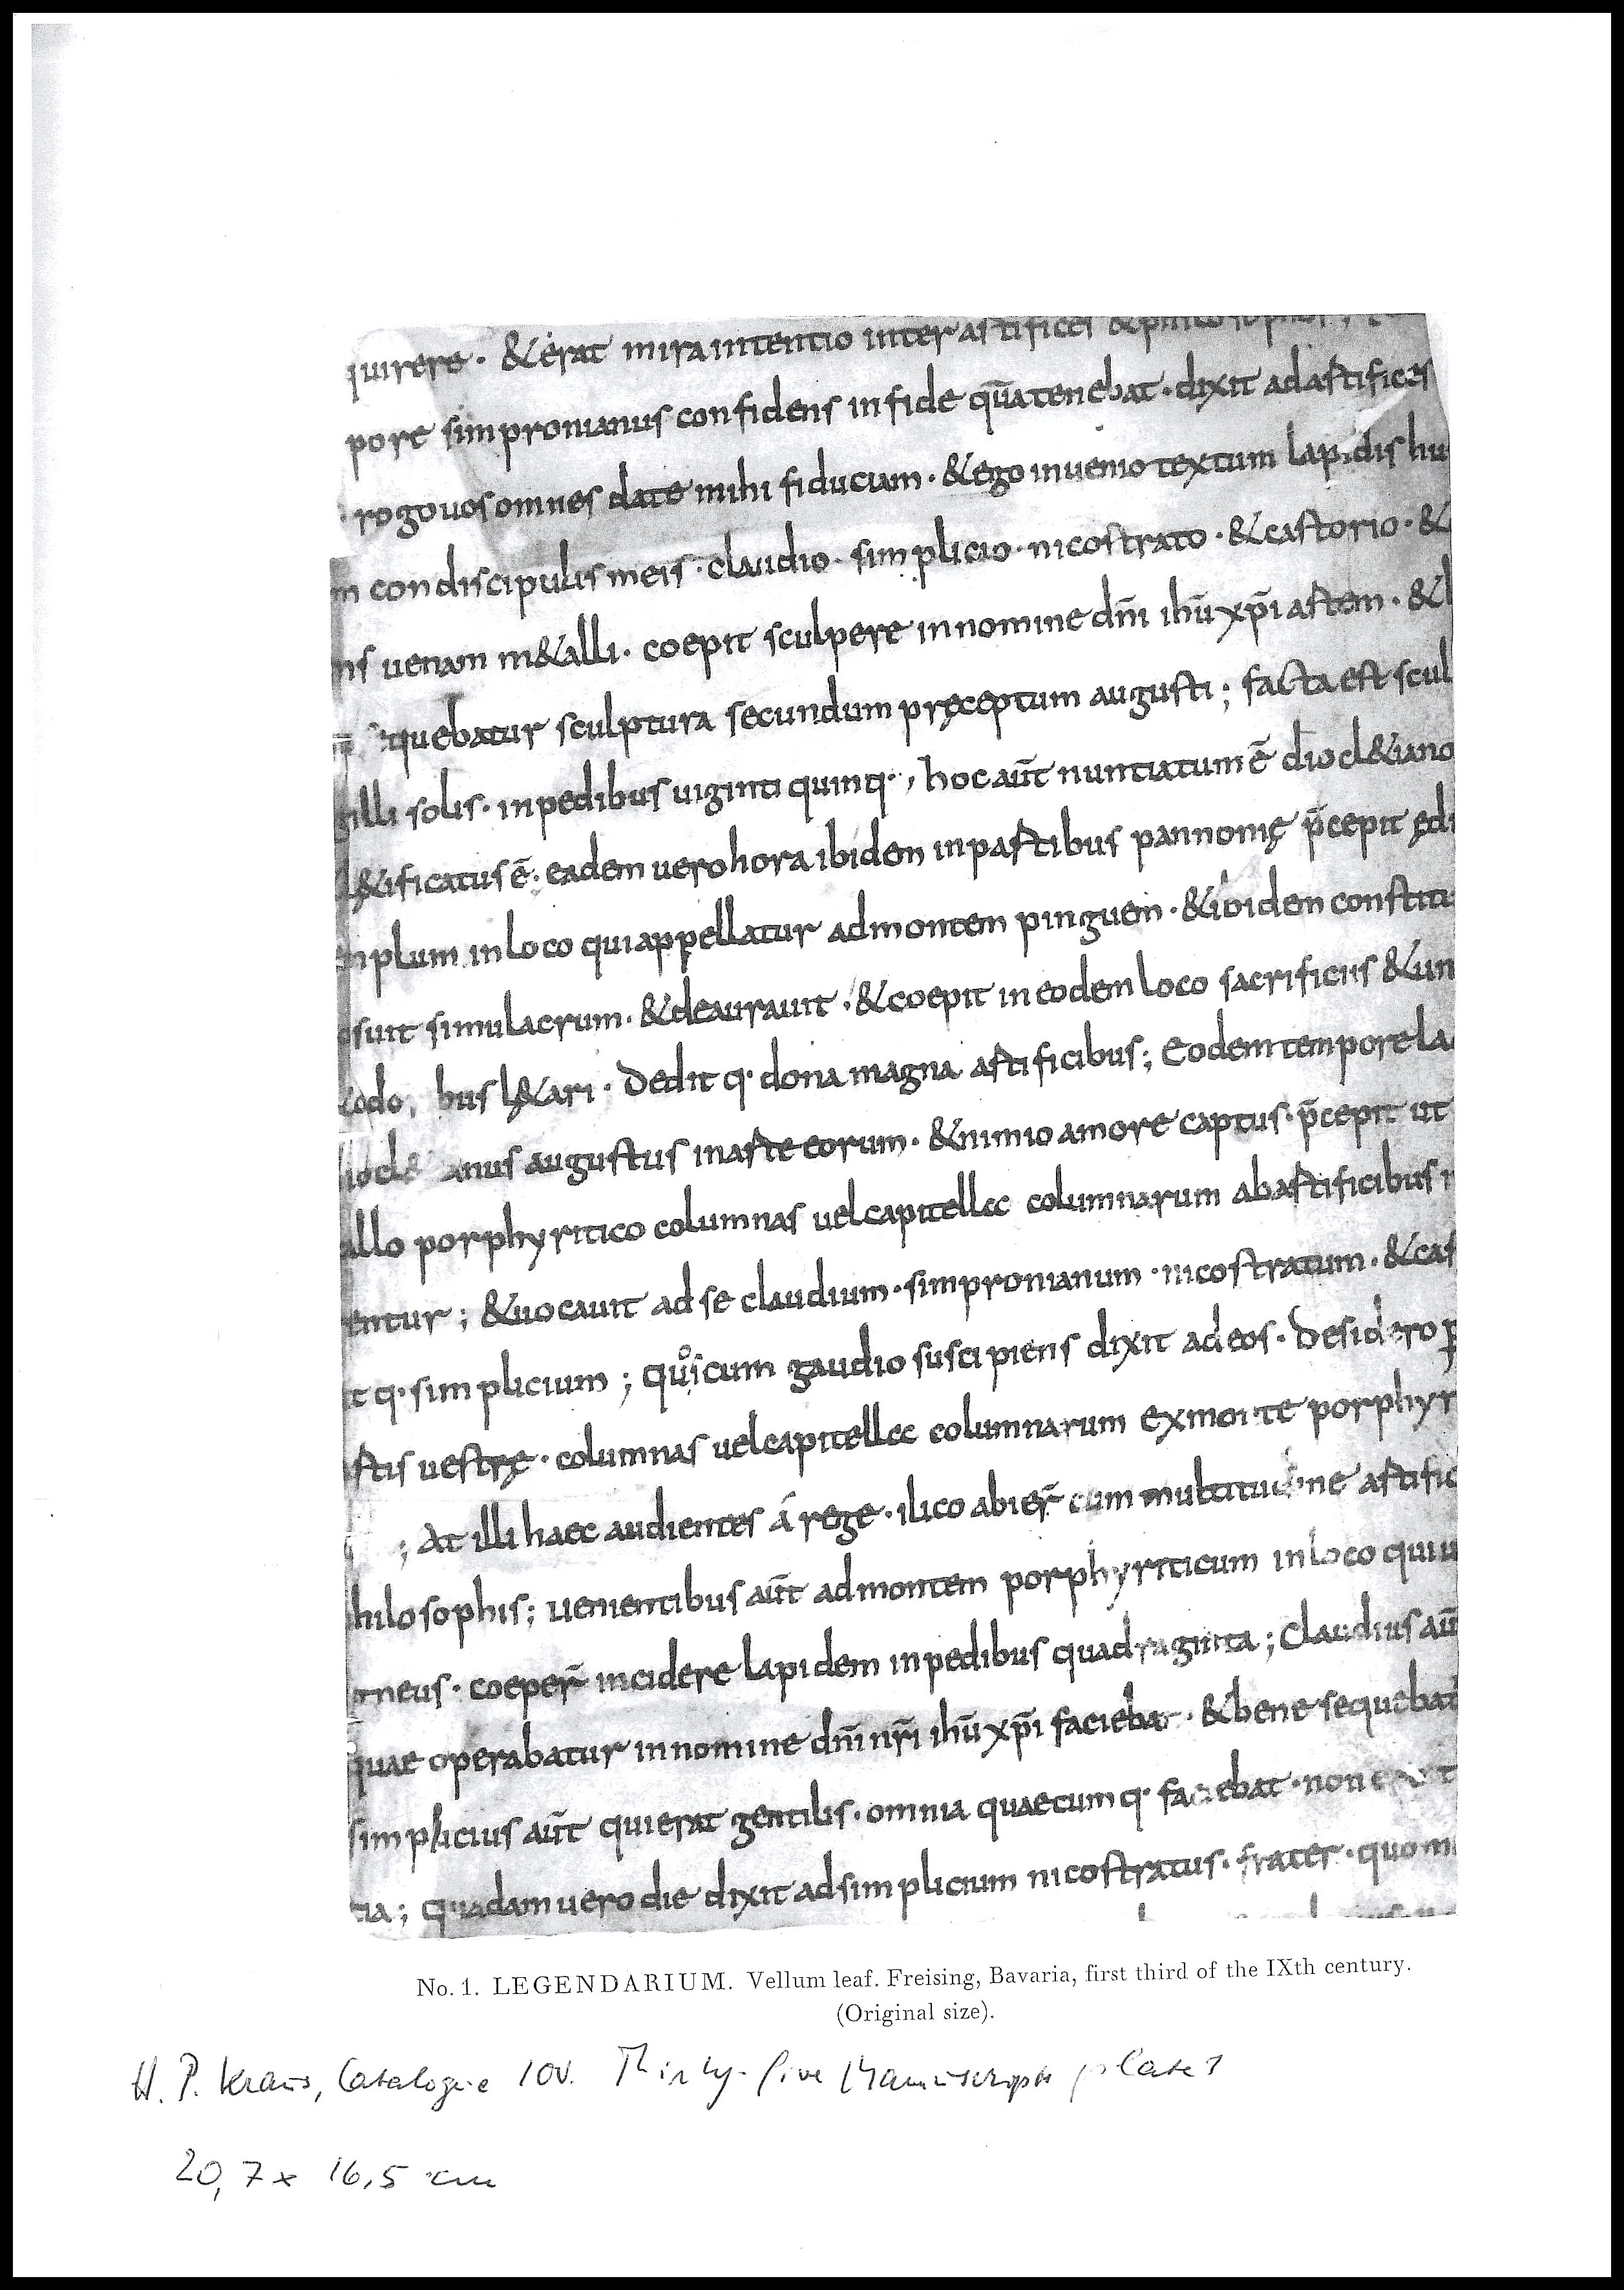 quirere · & erat mira intentio inter artifices &
pore simpronianus confidens in fide quā tenebat · dixit ad artifices
rogo uos omnes date mihi fiduciam · & ego inuenio textum lapidis hu
m condiscipulis meis · claudio · simplicio · nicostrato · & castorio · &
ns uenam m&alli · coepit sculpere in nomine dn̄i ihū xp̄i artem · &
sequebatur sculptura secundum pręceptum augusti ; facta est scul
gilli solis · in pedibus uiginti quinq· ; hoc aūt nuntiatum ē diocl&iano
l&ificatus ē · eadem uero hora ibidem in partibus pannonię p̄cepit ędi
mplum in loco qui appellatur ad montem pinguem · & ibidem constitu
osuit simulacrum · & deaurauit · & coepit in eodem loco sacrificiis & un
odo, bus l&ari · Dedit q· dona magna artificibus ; Eodem tempore la
iocl& anus augustus in arte eorum · & nimio amore captus · p̄cepit ut
allo porphyritico columnas uel capitellcc columnarum ab artificibus
entur ; & uocauit ad se claudium · simpronianum · nicostratum · & cas
t q· simplicium ; quos cum gaudio suscipiens dixit ad eos · Desidero p
rtis uestrę · columnas uel capitellcc columnarum ex monte porphyr
; At illi haec audientes á rege · ilico abier̄ cum multitudine artific
hilosophis ; uenientibus aūt ad montem porphyriticum in loco qui u
gneus · coeper̄ incidere lapidem in pedibus quadraginta ; Claudius aū
quae operabatur in nomine dn̄i nr̄i ihū xp̄i faciebat · & bene sequebat
simplicius aūt qui erat gentilis · omnia quaecumq· faciebat · non erat
tia ; quadam uero die dixit ad simplicium nicostratus · frater · quom
No. 1. LEGENDARIUM. Vellum leaf. Freising, Bavaria, first third of the IXth century.
(Original size).
H. P. Kraus, Catalogue 100. Thirty-five Manuscripts plate 1
20,7 x 16,5 cm